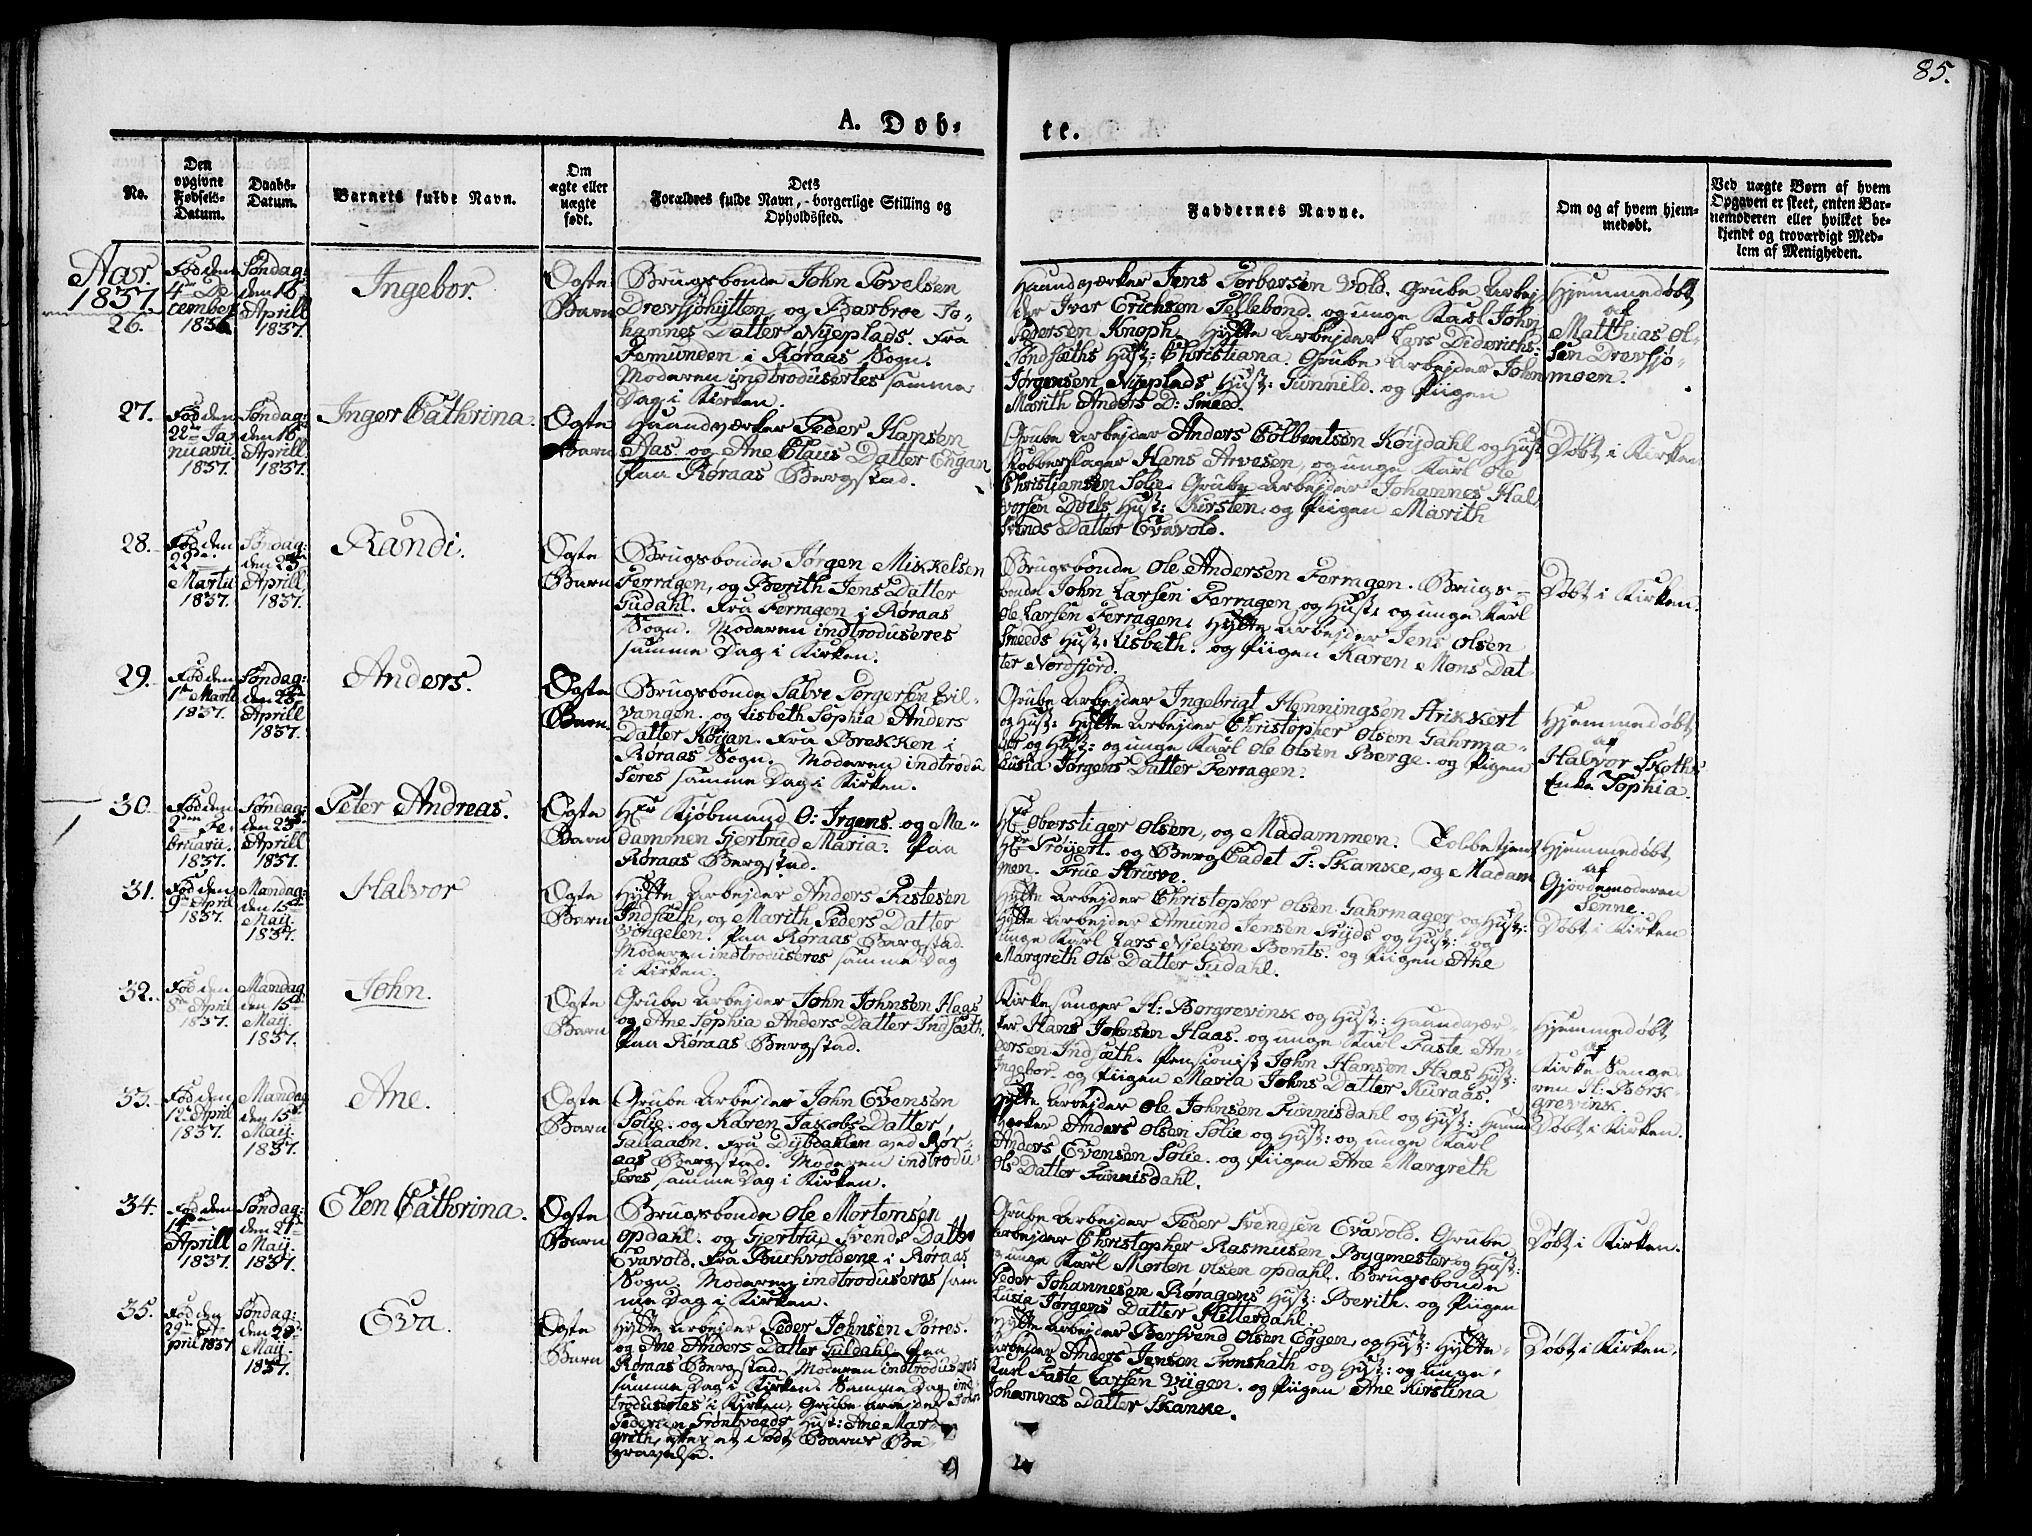 85.
A. Døb-
te.
No.
Den opgivne Fødsels-Datum.
Daabs-Datum.
Barnets fulde Navn.
Om ægte eller uægte født.
Dets Forældres fulde Navn, borgerlige Stilling og Opholdsted.
Faddernes Navne.
Om og af hvem hjemmedøbt.
Ved uægte Børn af hvem Opgaven er skeet, enten Barnemoderen eller hvilket bekjendt og troværdigt Medlem af Menigheden.
Aar
1837.
26.
Fød den
4de De
cember
1836
Søndag:
den 16de
Aprill
1837.
Ingebor.
Ægte
Barn
Brugsbonde John Povelsen
Drevsjøhytten, og Barbroe Jo-
hannes Datter Nyeplads. Fra
Femunden i Røraas Sogn.
Moderen indtrodusertes samme
Dag i Kirken.
Haandværker Jens Torbersen Vold. Grube Arbej
der Iver Erichsen Tellebond. og unge Karl John
Pedersen Knoph. Hytte Arbejder Lars Diderichs:
Sundsæths Hust: Christiana. Grube Arbejder John
Jørgensen Nyeplads Hust: Gunnild. og Piigen
Marith Anders D: Smeed.
Hjemmedøbt
af
Matthias Ol-
sen Drevsjø-
moen.
27.
Fød den
22de Ja
nuarii
1837.
Søndag
den 16de
Aprill
1837.
Inger Cathrina.
Ægte
Barn
Haandværker Peder Hansen
Aas og Ane Claus Datter Engan
Paa Røraas Bergstad.
Grube Arbejder Anders Colbentsen Køijdahl og Hust
Kobberslager Hans Arvesen, og unge Karl Ole
Christiansen Solie. Grube Arbejder Johannes Hal
vorsen Døels Hust: Kirsten. og Piigen Marith
Svends Datter Evavold.
Døbt i Kirken
28.
Fød den
22de
Martii
1837.
Søndag
den 23de
Aprill
1837.
Randi.
Ægte
Barn
Brugsbonde Jørgen Mikkelsen
Ferragen, og Berith Jens Datter
Gudahl. Fra Ferragen i Røraas
Sogn. Moderen indtroduseres
samme Dag i Kirken.
Brugsbonde Ole Andersen Ferragen. Brugs-
bonde John Larsen Ferragen og Hust: og unge Karl
Ole Larsen Ferragen. Hytte Arbejder Jens Olsen
Smeeds Hust: Lisbeth. og Piigen Karen Mons Dat
ter Nordfjord.
Døbt i Kirken.
29.
Fød den
1ste Martii
1837.
Søndag:
den 23de
Aprill
1837.
Anders.
Ægte
Barn.
Brugsbonde Salve Torgersen Evil-
vangen. og Lisbeth Sophia Anders
Datter Køijan. Fra Brekken i
Røraas Sogn. Moderen indtrodu
seres samme Dag i Kirken.
Grube Arbejder Ingebrigt Henningsen Strikkert
og Hust: Hytte Arbejder Christopher Olsen Gahrma-
ker og Hust: og unge Karl Ole Olsen Berge. og Pigen
Lusia Jørgens Datter Ferragen.
Hjemmedøbt
af
Halvor Skoths
Enke Sophia.
30.
Fød den
2den Fe-
bruarii.
1837.
Søndag:
den 23de
Aprill
1837.
Peter Andreas.
Ægte
Barn
Hr Kjøbmand O: Irgens. og Ma-
dammen Gjertrud Maria. Paa
Røraas Bergstad.
Hr Oberstiger Olsen, og Madammen. Tolbetjent
Hr Trøyert. og Berg Cadet T: Skanke, og Madam
men. Frue Struve.
Hjemmedøbt
af
Gjordemoderen
Senne.
31.
Fød den
9de April
1837.
Mandag:
den 15de
Maij.
1837.
Halvor
Ægte
Barn
Hytte Arbejder Anders Pistesen
Indsæth, og Marith Peders Datter
Vingelen. Paa Røraas Bergstad.
Moderen indtroduseres samme Dag
i Kirken.
Hytte Arbejder Christopher Olsen Gahrmager og Hust:
Hytte Arbejder Amund Jensen Tryds og Hust: og
unge Karl Lars Nielsen Bonts. og Piigen Ane
Margreth Ols Datter Gudahl.
Døbt i Kirken
32.
Fød den
8de April
1837.
Mandag
den 15de
Maij.
1837.
John.
Ægte
Barn
Grube Arbejder John Johnsen Haas
og Ane Sophia Anders Datter Indsæth.
Paa Røraas Bergstad.
Kirkesanger H: Borgrevink og Hust: Haandvær-
ker Hans Johnsen Haas. og unge Karl Faste An-
dersen Indsæth. Pensionist John Hansen Haas Hust:
Ingebor. og Piigen Maria Johns Datter Kuraas.
Hjemmedøbt
af
Kirke Sange
ren H: Bork-
grevink.
33.
Fød den
12te April
1837.
Mandag
den 15de
Maij
1837.
Ane.
Ægte
Barn
Grube Arbejder John Evensen
Solie. og Karen Jakobs Datter
Gallaaen. Fra Dybdahlen ved Rør-
aas Bergstad. Moderen indtrodu
seres samme Dag i Kirken.
Hytte Arbejder Ole Johnsen Funnisdahl og Hust: Haand
værker Anders Olsen Solie og Hust: og unge Karl
Anders Evensen Solie. og Piigen Ane Margreth
Ols Datter Funnisdahl.
Døbt i Kirken.
34.
Fød den
14de
Aprill
1837.
Søndag:
den 21de
Maij.
1837.
Elen Cathrina.
Ægte
Barn
Brugsbonde Ole Mortensen
Opdahl. og Gjertrud Svends Datter
Evavold. Fra Buchvoldene i Røraas
Sogn. Moderen indtroduseres sam
me Dag i Kirken.
Grube Arbejder Peder Svendsen Evavold. Grube
Arbejder Christopher Rasmusen Bygmester og Hust:
og unge Karl Morten Olsen Opdahl. Brugsbonde
Peder Johannesen Røragens Hust: Berith. og Piigen
Lusia Jørgens Datter Hitterdahl.
Døbt i Kirken.
35.
Fød den
29de A-
pril 1837
Søndag:
den 28de
Maij.
1837.
Eva.
Ægte
Barn
Hytte Arbejder Peder Johnsen Torres.
og Ane Anders Datter Guldahl. Paa
Røraas Bergstad. Moderen indtroduseres
samme Dag i Kirken. Samme Dag ind
trodusertes i Kirken, Grube Arbejder John
Pedersen Grøntvegds Hust: Ane Mar-
greth, efter et død Barns Be-
gravelse.
Hytte Arbejder Bersvend Olsen Eggen og Hust: Hytte-
Arbejder Anders Jensen Pronshath og Hust: og unge
Karl Faste Larsen Viigen. og Piigen Ane Kirstina
Johannes Datter Skanke.
Døbt i Kirken.